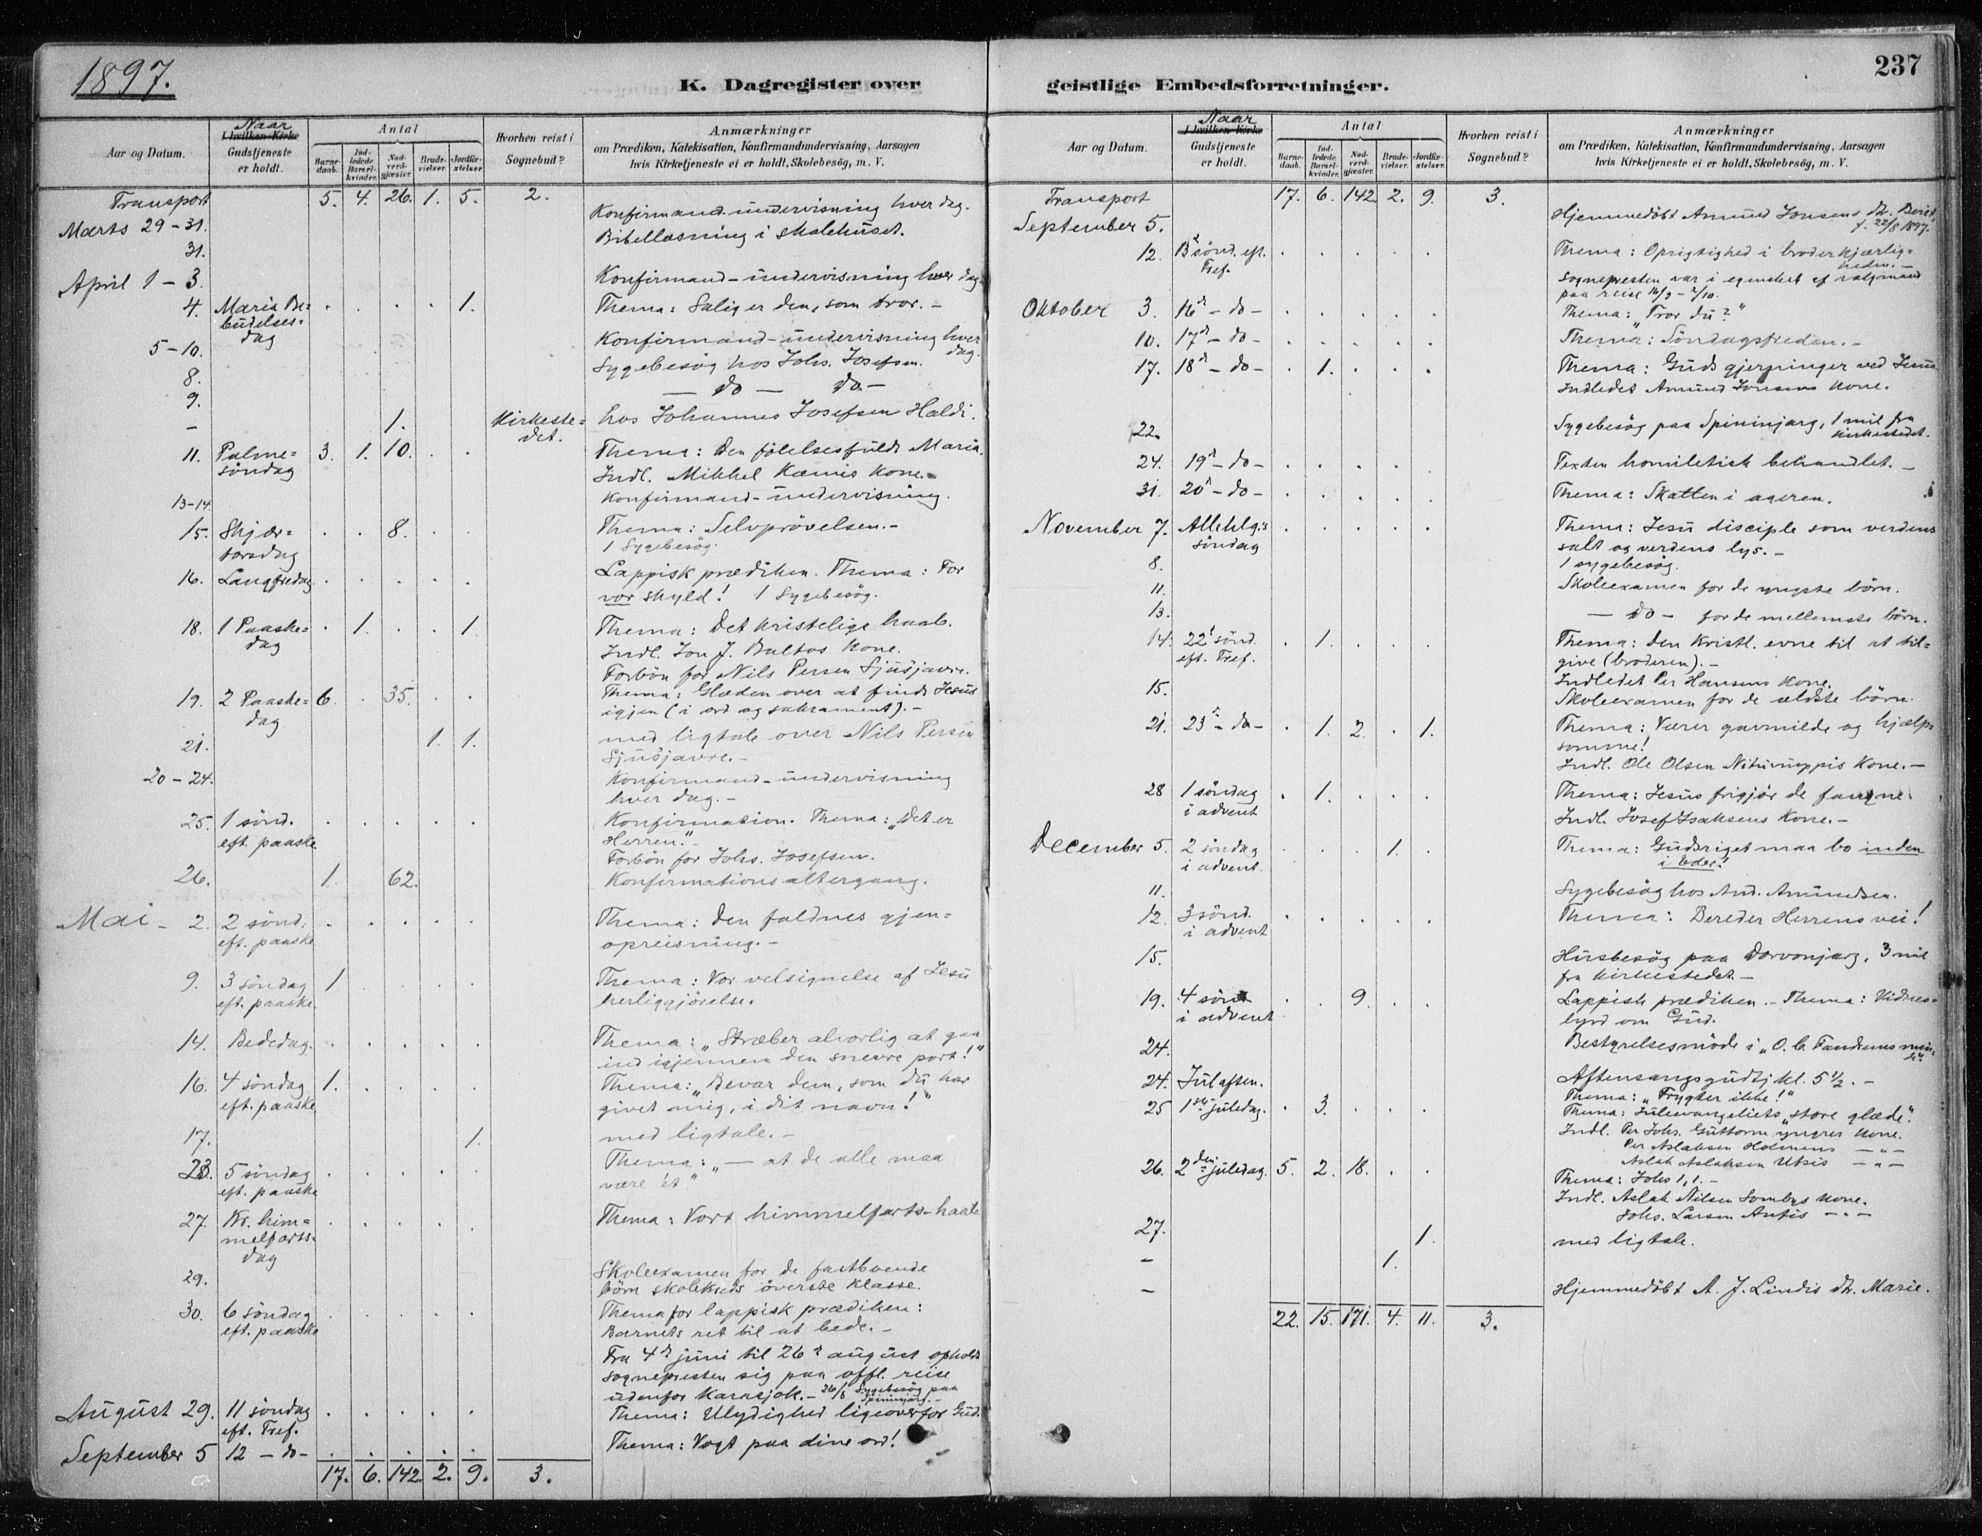 1897.
K. Dagregister over
Aar og Datum.
Naar
I hvilken Kirke
Gudstjeneste
er holdt.
Antal
Barne-
daab.
Ind-
ledede
Barsel-
kvinder.
Nad-
verd-
gjæster.
Brude-
vielser.
Jordfæ-
stelser
Hvorhen reist i
Sognebud?
Anmærkninger
om Prædiken, Katekisation, Konfirmandundervisning, Aarsagen
hvis Kirketjeneste ei er holdt, Skolebesøg, m. V.
Transport 5. 4. 26. 1. 5. 2.
Marts 29-31. Konfirmand-undervisning hver dag.
31. Bibellæsning i skolehuset.
April 1-3. Konfirmand-undervisning hver dag
4. Mariæ Be- . . . . 1. Thema: Salig er den, som tror.-
budelses-
dag
5-10. Konfirmand-undervisning hver
dag.
8. Sygebesøg hos Johs. Josefsen.
9. — do — do —
- 1. Kirkeste- hos Johannes Josefsen Haldi.
det.
11. Palme- 3. 1. 10. . . Thema: Den følelsesfulde Maria.
søndag Indl. Mikkel Kemis kone.-
13-14. Konfirmand-undervisning.
15. Skjær- . . 8. . . Thema: Selvprøvelsen.-
torsdag 1 Sygebesøg.
16. Langfredag . . . . . Lappisk prædiken. Thema: For
vor skyld! 1 Sygebesøg.
18. 1 Paaske- . 1. . . 1. Thema: Det kristelige haab.
dag Indl. Jon J. Baltos kone.
Forbøn for Nils Persen Sjusjavre.
19. 2 Paaske- 6. . 35. . . Thema: Glæden over at finde Jesus
dag igjen (i ord og sakrament).-
21. 1. 1. med ligtale over Nils Persen
Sjusjavre.-
20-24. Konfirmand-undervisning
hver dag.-
25. 1 sønd. . . . . . Konfirmation. Thema: "Det er
eft. paaske Herren."
Forbøn for Johs. Josefsen.
26. 1. 62. Konfirmationsaltergang.
Mai - 2. 2 sønd. . . . . . Thema: Den faldnes gjen-
eft. paaske opreisning.-
9. 3 søndag 1 . . . . Thema: Vor velsignelse af Jesu
eft. paaske. herliggjørelse.
14. Bededag. . . . . . Thema: "Stræber alvorlig at gaa
ind igjennem den snevre port!"
16. 4 søndag 1. . . . . Thema: "Bevar dem, som du har
eft. paaske givet mig, i dit navn!"
17. 1. med ligtale.-
23. 5 søndag . . . . . Thema: "— at de alle maa
eft. paaske være ét"
27. Kr. him- . . . . . Thema: Vort himmelfarts-haab
melfarts-
dag
29. Skoleexamen for de fastboende
børn skolekreds øverste klasse.
30. 6 søndag . . . . . Thema for lappisk prædiken:
eft. paaske Barnets ret til at bede.-
Fra 4de juni til 26de august opholdt
sognepresten sig paa offl. reise
udenfor Karasjok.- 26/8 Sygebesøg paa
Spininjarg.-
August 29. 11 søndag . . . . . Thema: Ulydighed ligeoverfor Gud.
eft. Tref.
September 5 12 - do- . . . . . Thema: Vogt paa dine ord!
17. 6. 142. 2. 9. 3.
geistlige Embedsforretninger.
237
Aar og Datum.
Naar
I hvilken Kirke
Gudstjeneste
er holdt.
Antal
Barne-
daab.
Ind-
ledede
Barsel-
kvinder.
Nad-
verd-
gjæster.
Brude-
vielser.
Jordfæ-
stelser
Hvorhen reist i
Sognebud?
Anmærkninger
om Prædiken, Katekisation, Konfirmandundervisning, Aarsagen
hvis Kirketjeneste ei er holdt, Skolebesøg, m. V.
Transport 17. 6. 142. 2. 9. 3.
September 5. Hjemmedøbt Amund Jonsens dt. Berit,
f. 22/8 1897.
12. 13d sønd. eft. . . . . . Thema: Oprigtighed i broderkjærlig-
Tref. heden.-
Sognepresten var i egenskab af valgmand
paa reise 16/9 - 2/10.
Oktober 3. 16d - do - . . . . . Thema: "Tror du?"
10. 17d - do- . . . . . Thema: Søndagsfreden.-
17. 18d - do- . 1. . . . Thema: Guds gjerninger ved Jesus
Indledet Amund Jonsens kone.
22. Sygebesøg paa Spininjarg, 1 mil fra
kirkestedet.
24. 19d - do- . . . . . Texten homiletisk behandlet.-
31. 20d - do- . . . . . Thema: Skatten i ageren.
November 7. Allehlg.s . . . . . Thema: Jesu disciple som verdens
søndag salt og verdens lys.-
8. 1 sygebesøg.
11. Skoleexamen for de yngste børn.
13. — do — for de mellemste børn.
14. 22d sønd. . 1. . . . Thema: Den kristl. evne til at til-
eft. Tref. give (broderen).-
Indledet Per Hansens kone.
15. Skoleexamen for de ældste børn.
21. 23d - do- . 1. 2. . 1. Thema: Værer gavmilde og hjælp-
somme!
Indl. Ole Olsen Niturnppis kone.-
28 1 søndag . 1. . . . Thema: Jesus frigjør de fangne.
i advent Indl. Josef Isaksens kone.-
December 5. 2 søndag . . . 1. . Thema: Gudsriget maa bo inden
i advent. i eder!
11. Sygebesøg hos And. Amundsen.
12. 3 sønd. . . . . . Thema: Bereder Herrens vei!
i advent
15. Husbesøg paa Dorvonjarg, 3 mil
fra kirkestedet.-
19. 4 sønd . . 9. . . Lappisk prædiken.- Thema: Vidnes-
i advent byrd om Gud.
24. Bestyrelsesmøde i "O. C. Fandrems min-
de".
24. Julaften. Aftensangsgudtj. kl. 5 1/2.-
Thema: "Frygter ikke!"
25 1ste juledag. . 3. . . . Thema: Juleevangeliets "store glæde".
Indl. Per Johs. Guttorm yngres kone.
Per Aslaksen Holmens — " —
Aslak Aslaksen Utsis — " —
26. 2den juledag. 5. 2. 18. . . Thema: Johs 1,1.-
Indl. Aslak Nilsen Sombys kone.
Johs. Larsen Antis — " —
27. 1. med ligtale.
- 1.
- Hjemmedøbt A. J. Lindis dt. Marie.
22. 15. 171. 4. 11. 3.